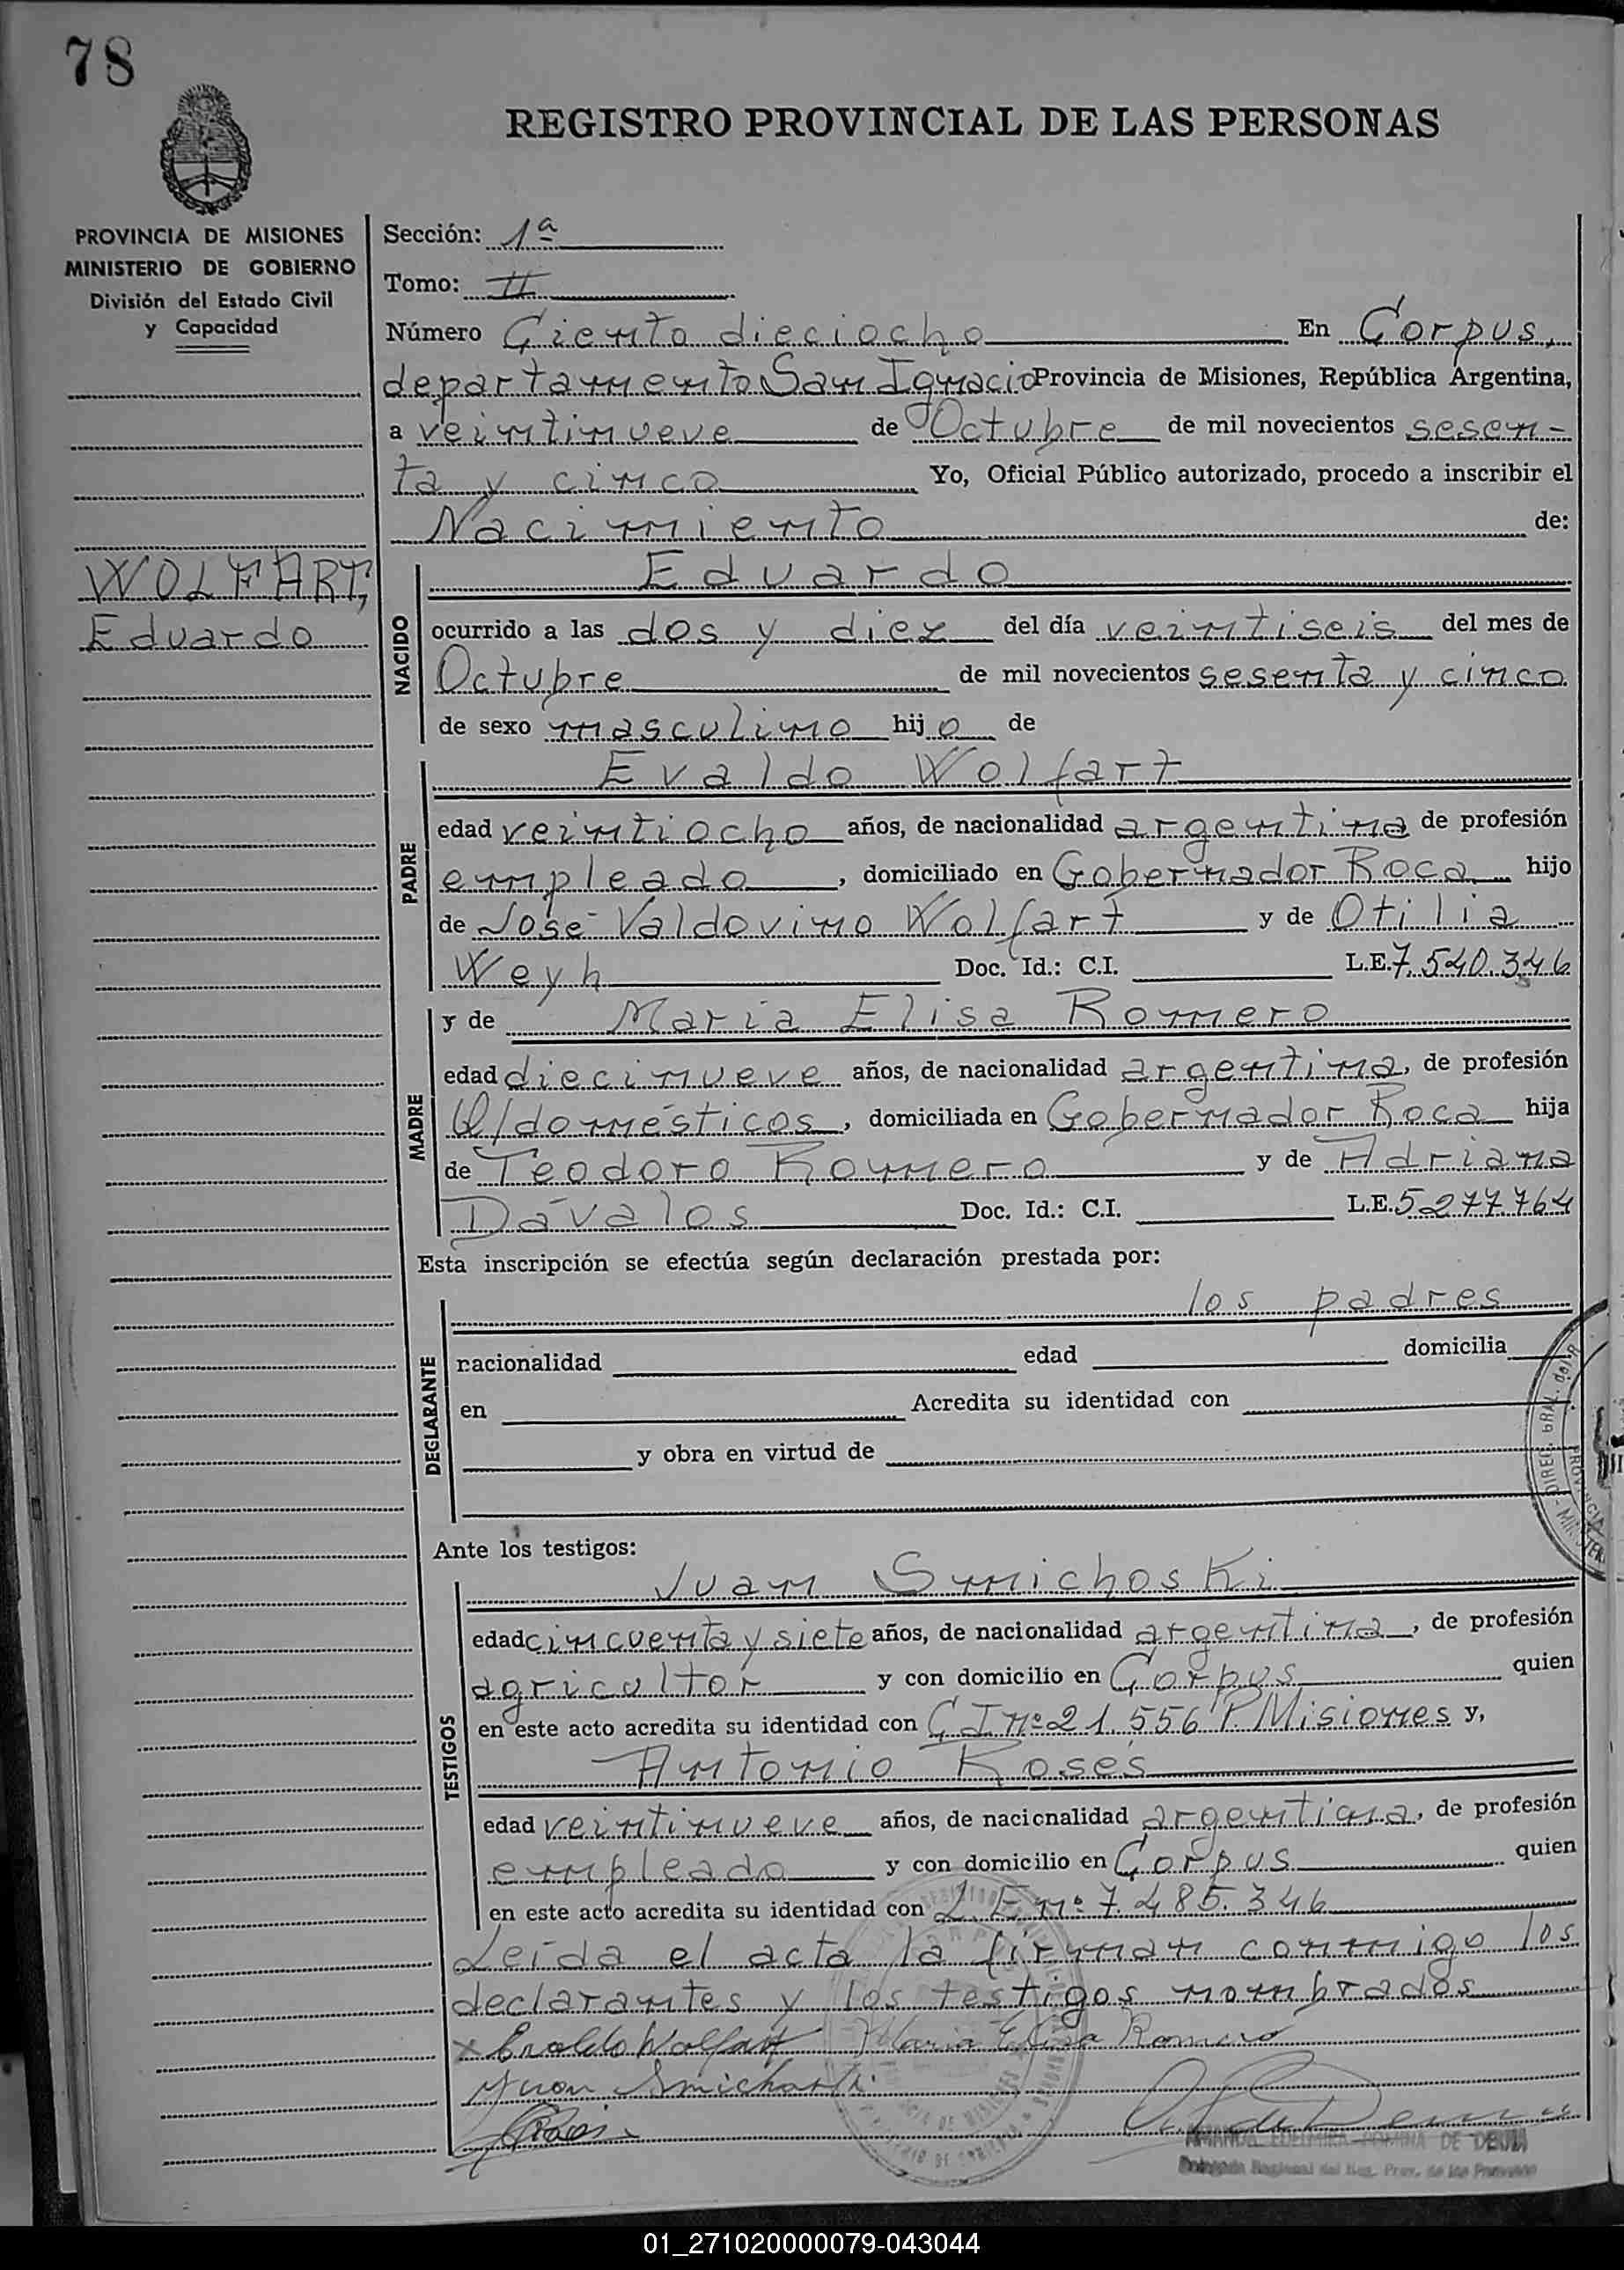 78
REGISTRO PROVINCIAL DE LAS PERSONAS
PROVINCIA DE MISIONES
MINISTERIO DE GOBIERNO
División del Estado Civil
y Capacidad
WOLFART,
Eduardo
Sección: 1ª
Tomo: II
Número Ciento dieciocho En Corpus,
departamento San Ignacio Provincia de Misiones, República Argentina,
a veintinueve de Octubre de mil novecientos sesen-
ta y cinco Yo, Oficial Público autorizado, procedo a inscribir el
Nacimiento de:
NACIDO
Eduardo
ocurrido a las dos y diez del día veintiseis del mes de
Octubre de mil novecientos sesenta y cinco
de sexo masculino hijo de
PADRE
Evaldo Wolfart
edad veintiocho años, de nacionalidad argentina de profesión
empleado, domiciliado en Gobernador Roca hijo
de José Valdovino Wolfart y de Otilia
Weyh Doc. Id.: C.I. L.E. 7.540.346
MADRE
y de Maria Elisa Romero
edad diecinueve años, de nacionalidad argentina, de profesión
Q/domésticos, domiciliada en Gobernador Roca hija
de Teodoro Romero y de Adriana
Dávalos Doc. Id.: C.I. L.E. 5.277.764
Esta inscripción se efectúa según declaración prestada por:
DECLARANTE
los padres
nacionalidad edad domicilia
en Acredita su identidad con
y obra en virtud de
Ante los testigos:
TESTIGOS
Juan Smichoski
edad cincuenta y siete años, de nacionalidad argentina, de profesión
agricultor y con domicilio en Corpus quien
en este acto acredita su identidad con C I nº 21.556 P. Misiones y,
Antonio Roses
edad veintinueve años, de nacionalidad argentina, de profesión
empleado y con domicilio en Corpus quien
en este acto acredita su identidad con L.E nº 7.485.346
Leída el acta la firman conmigo los
declarantes y los testigos nombrados
x Evaldo Wolfart Maria Elisa Romero
Juan Smichoski
AMANDA EDELMIRA ROMINA DE
Delegada Regional del Reg. Prov. de las Personas
01_271020000079-043044